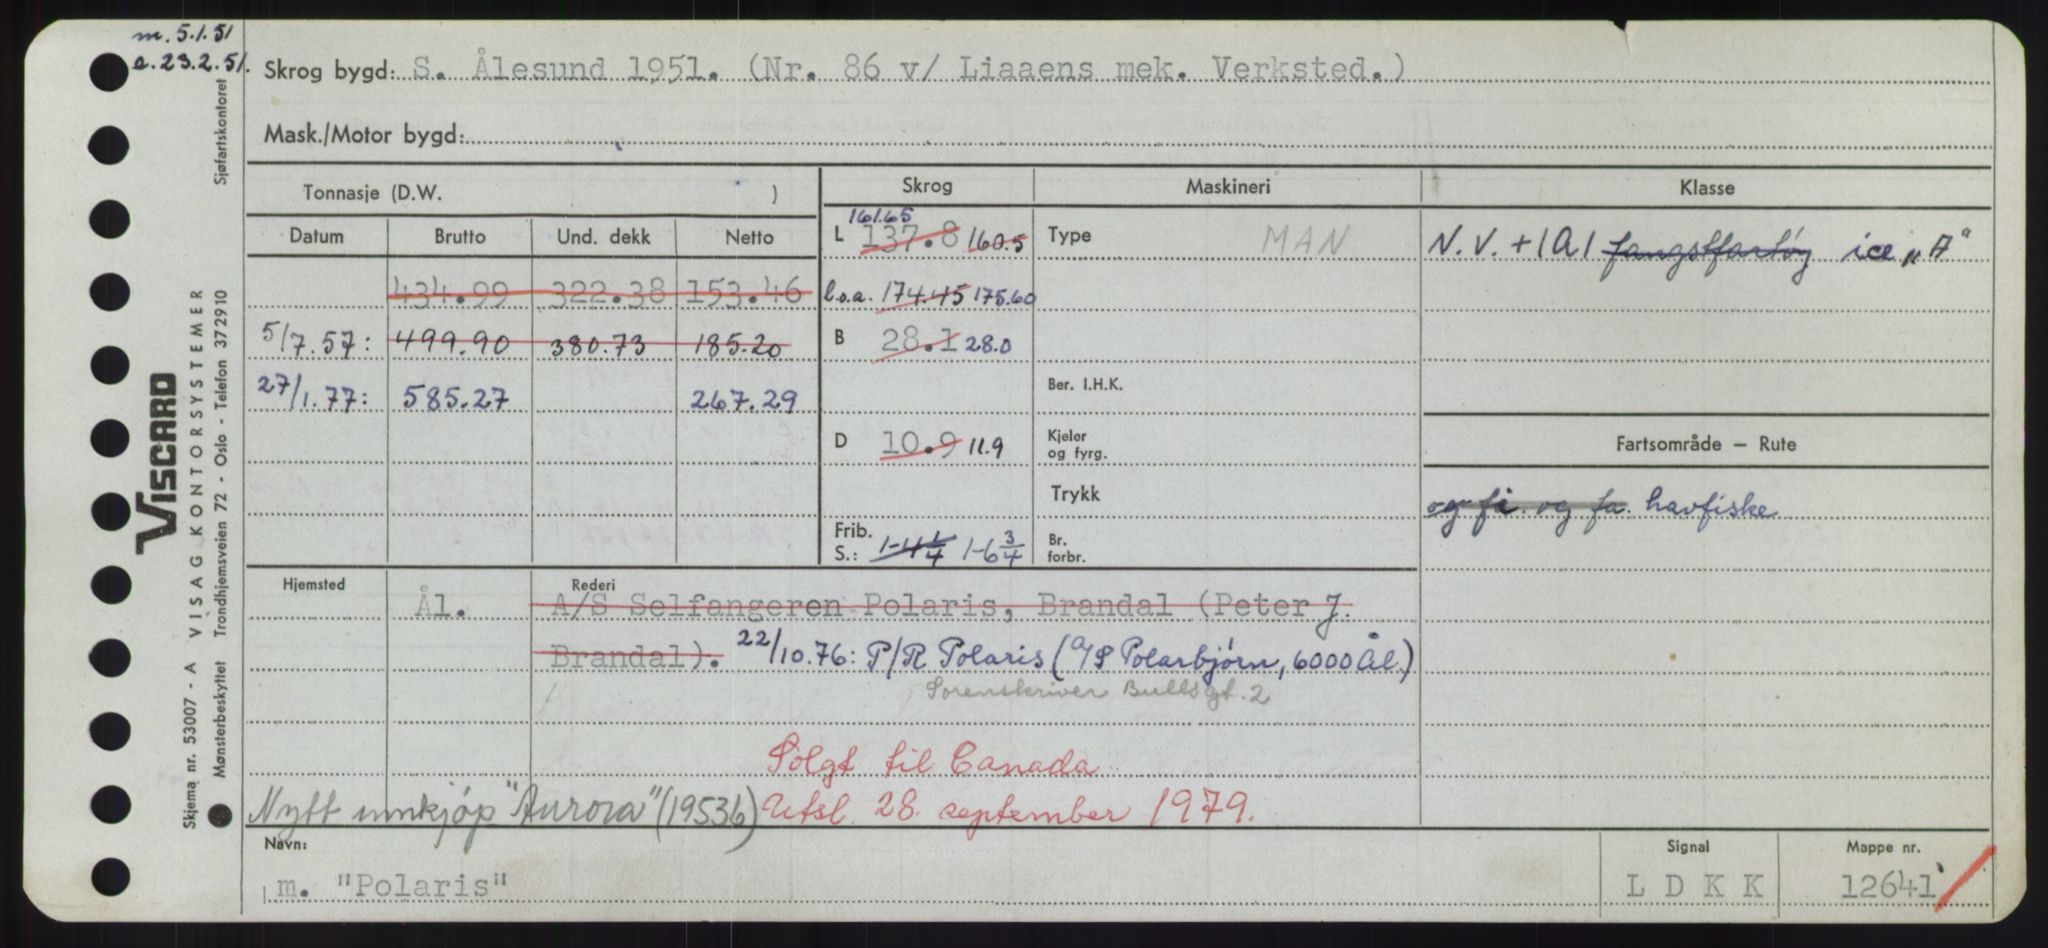 m. 5.1.51
e. 23.2.51.
Skrog bygd: S. Ålesund 1951. (Nr. 86 v/ Liaaens mek. Verksted.)
Mask./Motor bygd:
Tonnasje (D.W. )
Skrog
Maskineri
Klasse
Datum Brutto Und. dekk Netto
434.99 322.38 153.46
5/7.57: 499.90 380.73 185.20
27/1.77: 585.27 267.29
161.65
L 137.8 160.5
l.o.a. 174.45 175.60
B 28.1 28.0
D 10.9 11.9
Frib.
S.: 1-4 1/4 1-6 3/4
Type MAN
Ber. I.H.K.
Kjeler
og fyrg.
Trykk
Br.
forbr.
N.V. +1A1 fangstfartøy ice „A“
Fartsområde — Rute
og fi. og fa. havfiske
Hjemsted Rederi
Ål. A/S Selfangeren Polaris, Brandal (Peter J.
Brandal). 22/10.76: P/R Polaris (A/S Polarbjørn, 6000 Ål.)
Sorenskriver Bullsgt. 2
Solgt til Canada
Nytt innkjøp "Aurora" (19536) Utsl. 28. september 1979.
Navn:
m. "Polaris"
Signal
L D K K
Mappe nr.
12641
VISCARD
Skjema nr. 53007 - A VISAG KONTORSYSTEMER
Mønsterbeskyttet Trondhjemsveien 72 - Oslo - Telefon 372910 Sjøfartskontoret